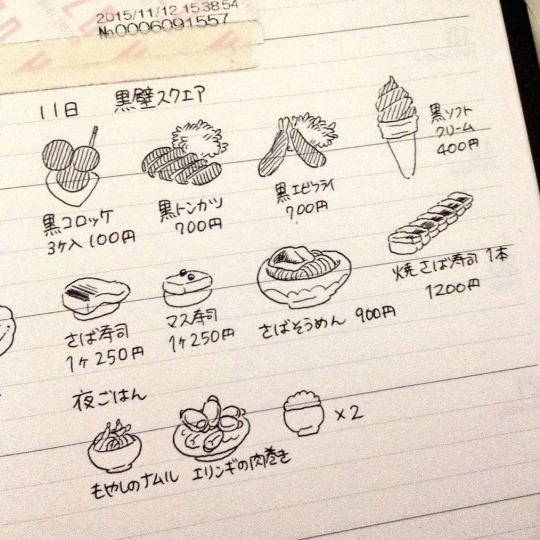 2015/11/12 15:38:54
No0006091557
11日 黒壁スクエア
黒コロッケ
3ヶ入 100円
黒トンカツ
700円
黒エビフライ
700円
黒ソフト
クリーム
400円
さば寿司
1ヶ250円
マス寿司
1ヶ250円
さばそうめん 900円
焼さば寿司 1本
1200円
夜ごはん
もやしのナムル
エリンギの肉巻き
×2